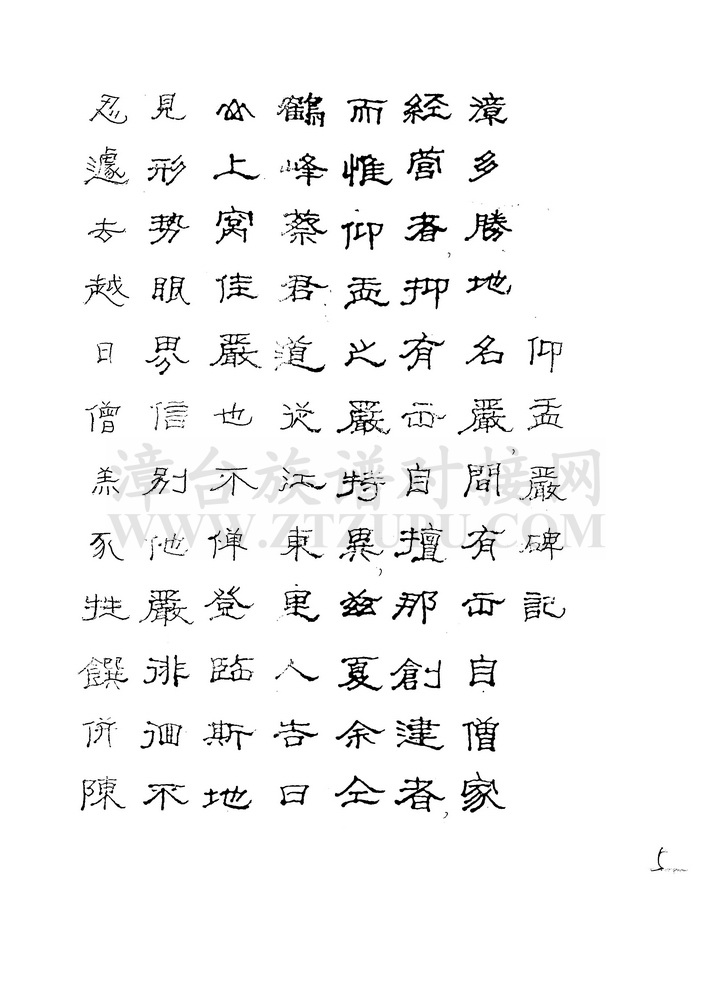 仰盂嚴碑記
漳多勝地名嚴,間有出自僧家
經營者,抑有出自檀那創建者,
而惟仰盂之嚴特異,茲夏余仝
鶴峰蔡君道從江東里人告曰
上窩佳嚴也不俾登臨斯地
見形勢眼界信別他嚴徘徊不
忍遽去越日僧羔豕牲饌併陳
5
漳台族谱对接网
WWW.ZTZUPU.COM